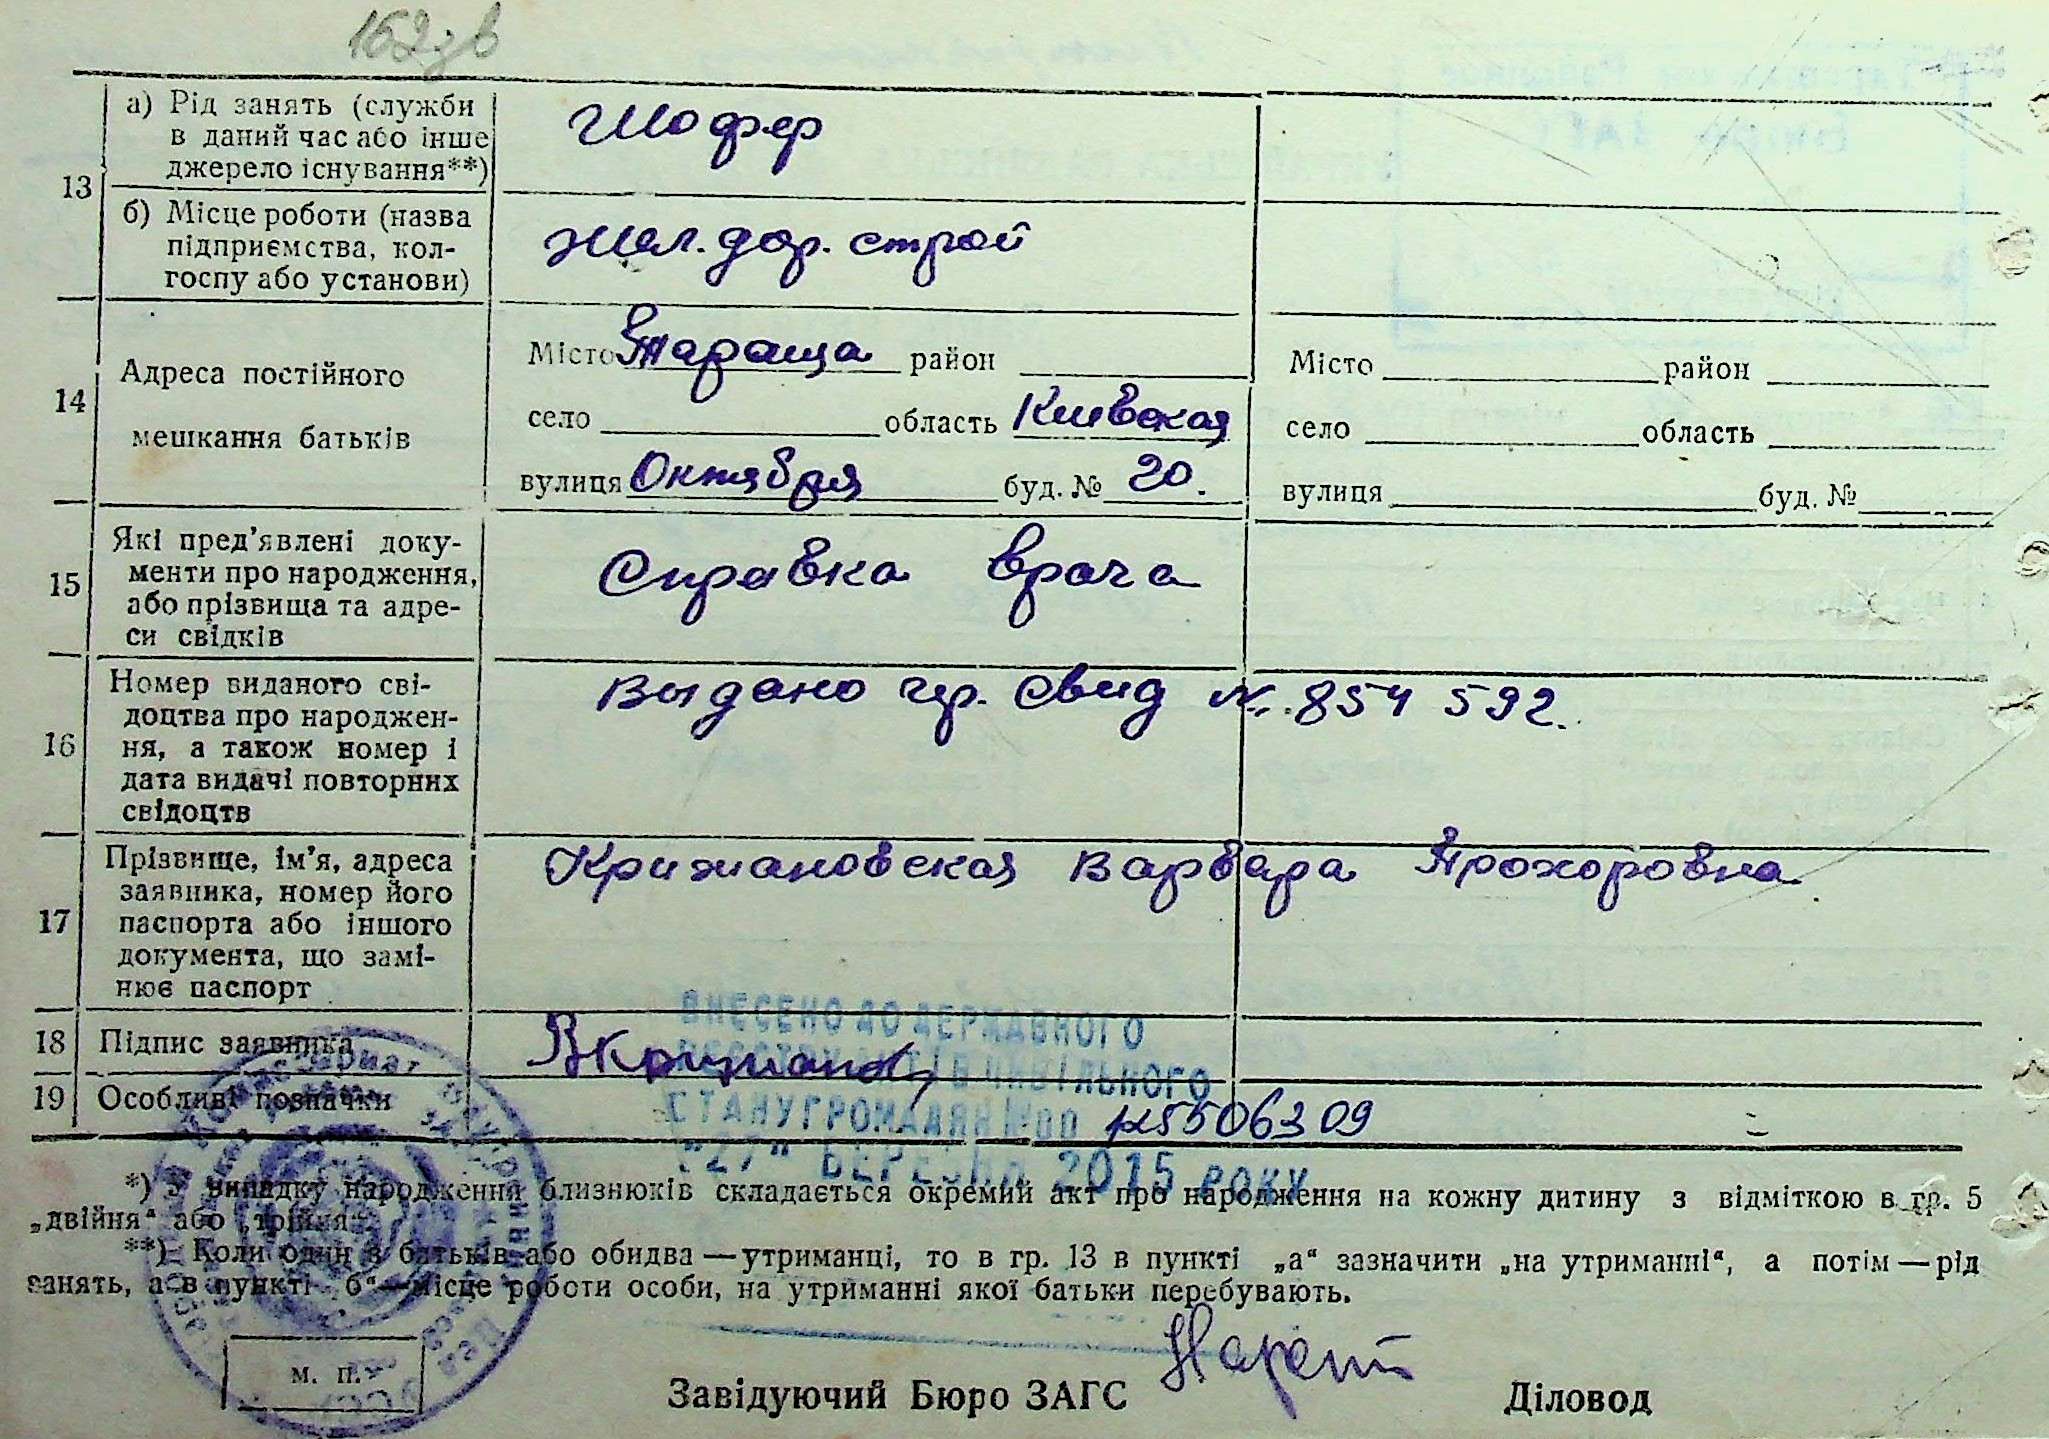 162 зв
13
а) Рід занять (служби
в даний час або інше
джерело існування**)
Шофер
б) Місце роботи (назва
підприємства, кол-
госпу або установи)
жел. дор. строй
14
Адреса постійного
мешкання батьків
Місто Тараща район
село область Киевская
вулиця Октября буд. № 20.
Місто район
село область
вулиця буд. №
15
Які пред'явлені доку-
менти про народження,
або прізвища та адре-
си свідків
Справка врача
16
Номер виданого сві-
доцтва про народжен-
ня, а також номер і
дата видачі повторних
свідоцтв
Выдано гр. свид №. 854 592.
17
Прізвище, ім'я, адреса
заявника, номер його
паспорта або іншого
документа, що замі-
нює паспорт
Крижановская Варвара Прохоровна
18 Підпис заявника
19 Особливі позначки
ВНЕСЕНО ДО ДЕРЖАВНОГО
РЕЄСТРУ АКТІВ ЦИВІЛЬНОГО
СТАНУ ГРОМАДЯН №00 5506309
"27" БЕРЕЗНЯ 2015 РОКУ
*) У випадку народження близнюків складається окремий акт про народження на кожну дитину з відміткою в гр. 5
„двійня“ або „трійня“.
**) Коли один з батьків або обидва — утриманці, то в гр. 13 в пункті „а“ зазначити „на утриманні“, а потім — рід
занять, а в пункті „б“ — місце роботи особи, на утриманні якої батьки перебувають.
м. п.
Завідуючий Бюро ЗАГС
Діловод